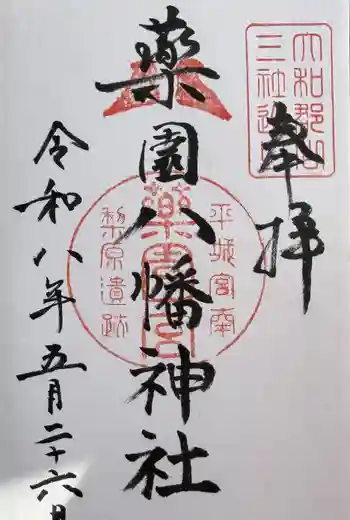 奉拝
大和郡山
三社巡り
薬園八幡神社
平城宮南
薬園宮
梨原遺跡
令和八年五月二十六日